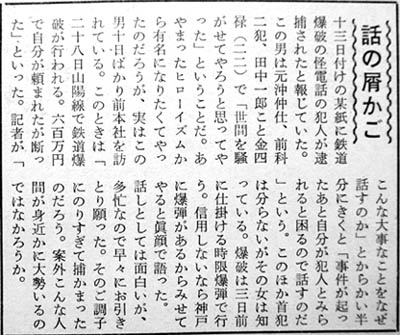 話の屑かご
十三日付けの某紙に鉄道
爆破の怪電話の犯人が逮
捕されたと報じていた。
この男は元沖仲仕、前科
二犯、田中一郎こと金四
禄（二二）で「世間を騒
がせてやろうと思ってや
った」ということだ。あ
やまったヒローイズムか
ら有名になりたくてやっ
たのだろうが、実はこの
男十日ばかり前本社を訪
れている。このときは「
二十八日山陽線で鉄道爆
破が行われる。六百万円
で自分が頼まれたが断っ
た」といった。記者が「
こんな大事なことをなぜ
話すのか」とからかい半
分にきくと「事件が起っ
たあと自分が犯人とみら
れると困るので話すのだ
」という。このほか首犯
は分らないがその女は知
っている。爆破は三日前
に仕掛ける時限爆弾で行
う。信用しないなら神戸
に爆弾があるからみせて
やると眞顔で語った。
話しとしては面白いが、
多忙なので早々にお引き
とり願った。そのご調子
にのりすぎて捕まった
のだろう。案外こんな人
間が身近かに大勢いるの
ではなかろうか。